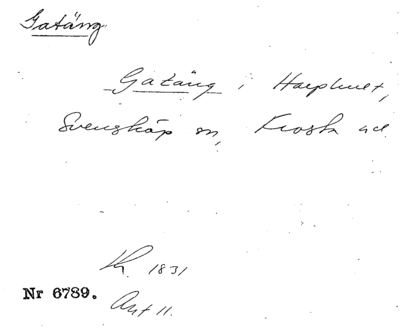 Gatäng
Gatäng i Harphult,
Svensköp sn, Frosta hd.
LK. 1831
Nr 6789.
Akt 11.